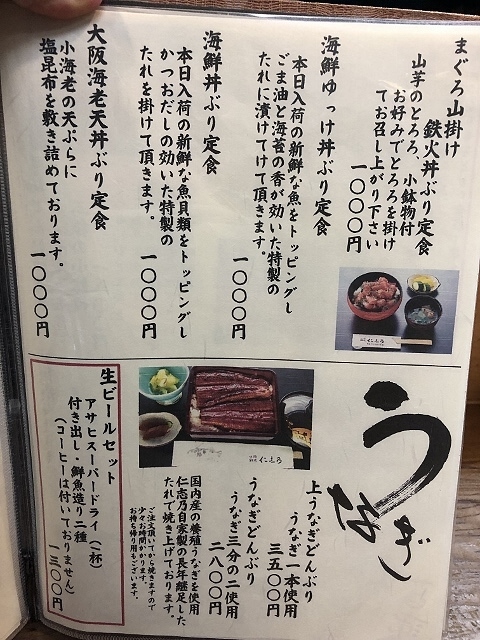 まぐろ山掛け
鉄火丼ぶり定食
山芋のとろろ、小鉢物付
お好みでとろろを掛け
てお召し上がり下さい
一〇〇〇円
海鮮ゆっけ丼ぶり定食
本日入荷の新鮮な魚をトッピングし
ごま油と海苔の香が効いた特製の
たれに漬けてけて頂きます。
一〇〇〇円
海鮮丼ぶり定食
本日入荷の新鮮な魚貝類をトッピングし
かつおだしの効いた特製の
たれを掛けて頂きます。
一〇〇〇円
大阪海老天丼ぶり定食
小海老の天ぷらに
塩昆布を敷き詰めております。
一〇〇〇円
うなぎ
上うなぎどんぶり
うなぎ一本使用
三五〇〇円
うなぎどんぶり
うなぎ三分の二使用
二八〇〇円
国内産の養殖うなぎを使用
仁志乃自家製の長年継足した
たれで焼き上げております。
ご注文頂いてから焼きますので
少々お時間かかります。
お持ち帰り用もございます。
生ビールセット
アサヒスーパードライ(一杯)
付き出し・鮮魚造り二種
(コーヒーは付いておりません)
一三〇〇円